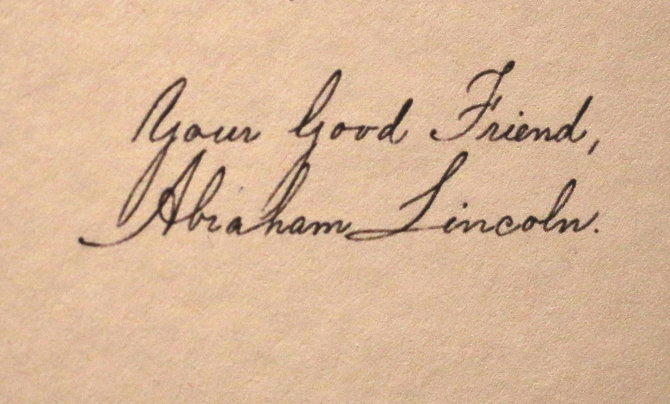 Your Good Friend,
Abraham Lincoln.